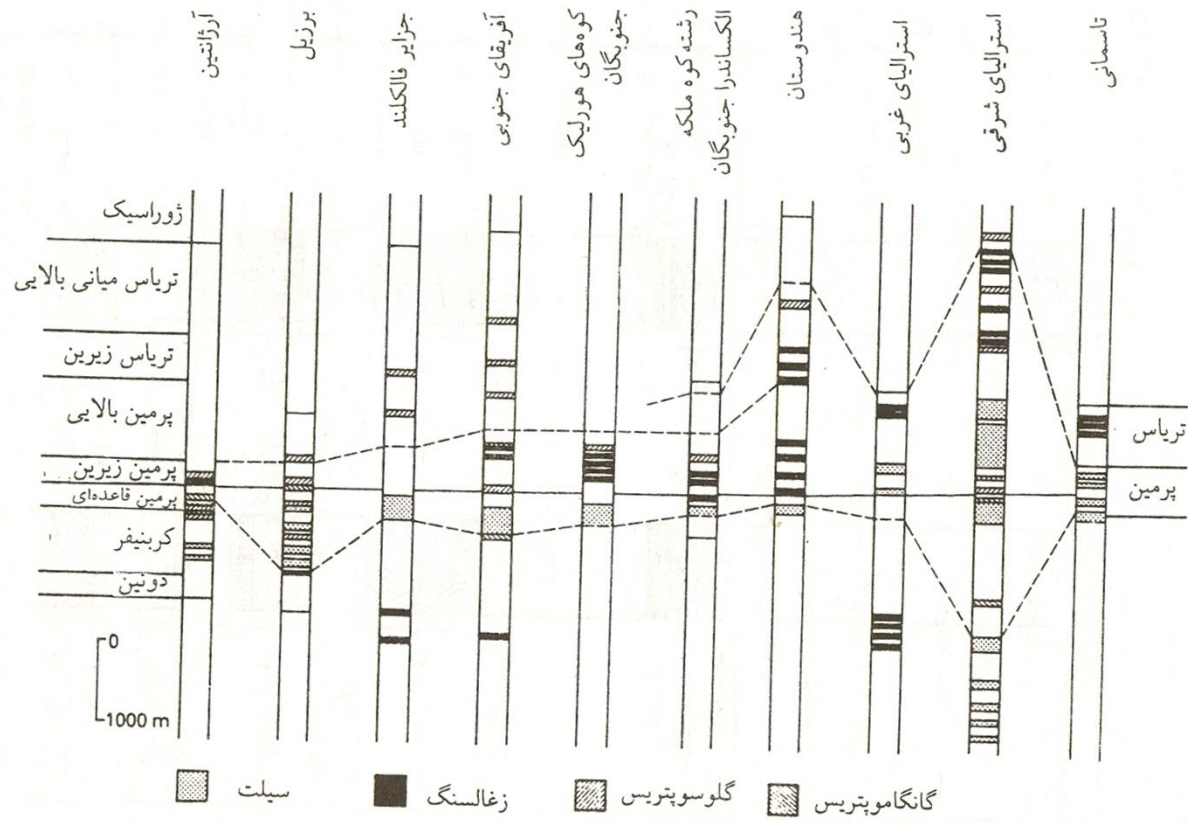 آرژانتین
برزیل
جزایر فالکلند
آفریقای جنوبی
کوه‌های هورلیک
جنوبگان
رشته‌کوه ملکه
الکساندرا جنوبگان
هندوستان
استرالیای غربی
استرالیای شرقی
تاسمانی
ژوراسیک
تریاس میانی بالایی
تریاس زیرین
پرمین بالایی
پرمین زیرین
پرمین قاعده‌ای
کربنیفر
دونین
تریاس
پرمین
0
1000 m
سیلت
زغالسنگ
گلوسوپتریس
گانگاموپتریس